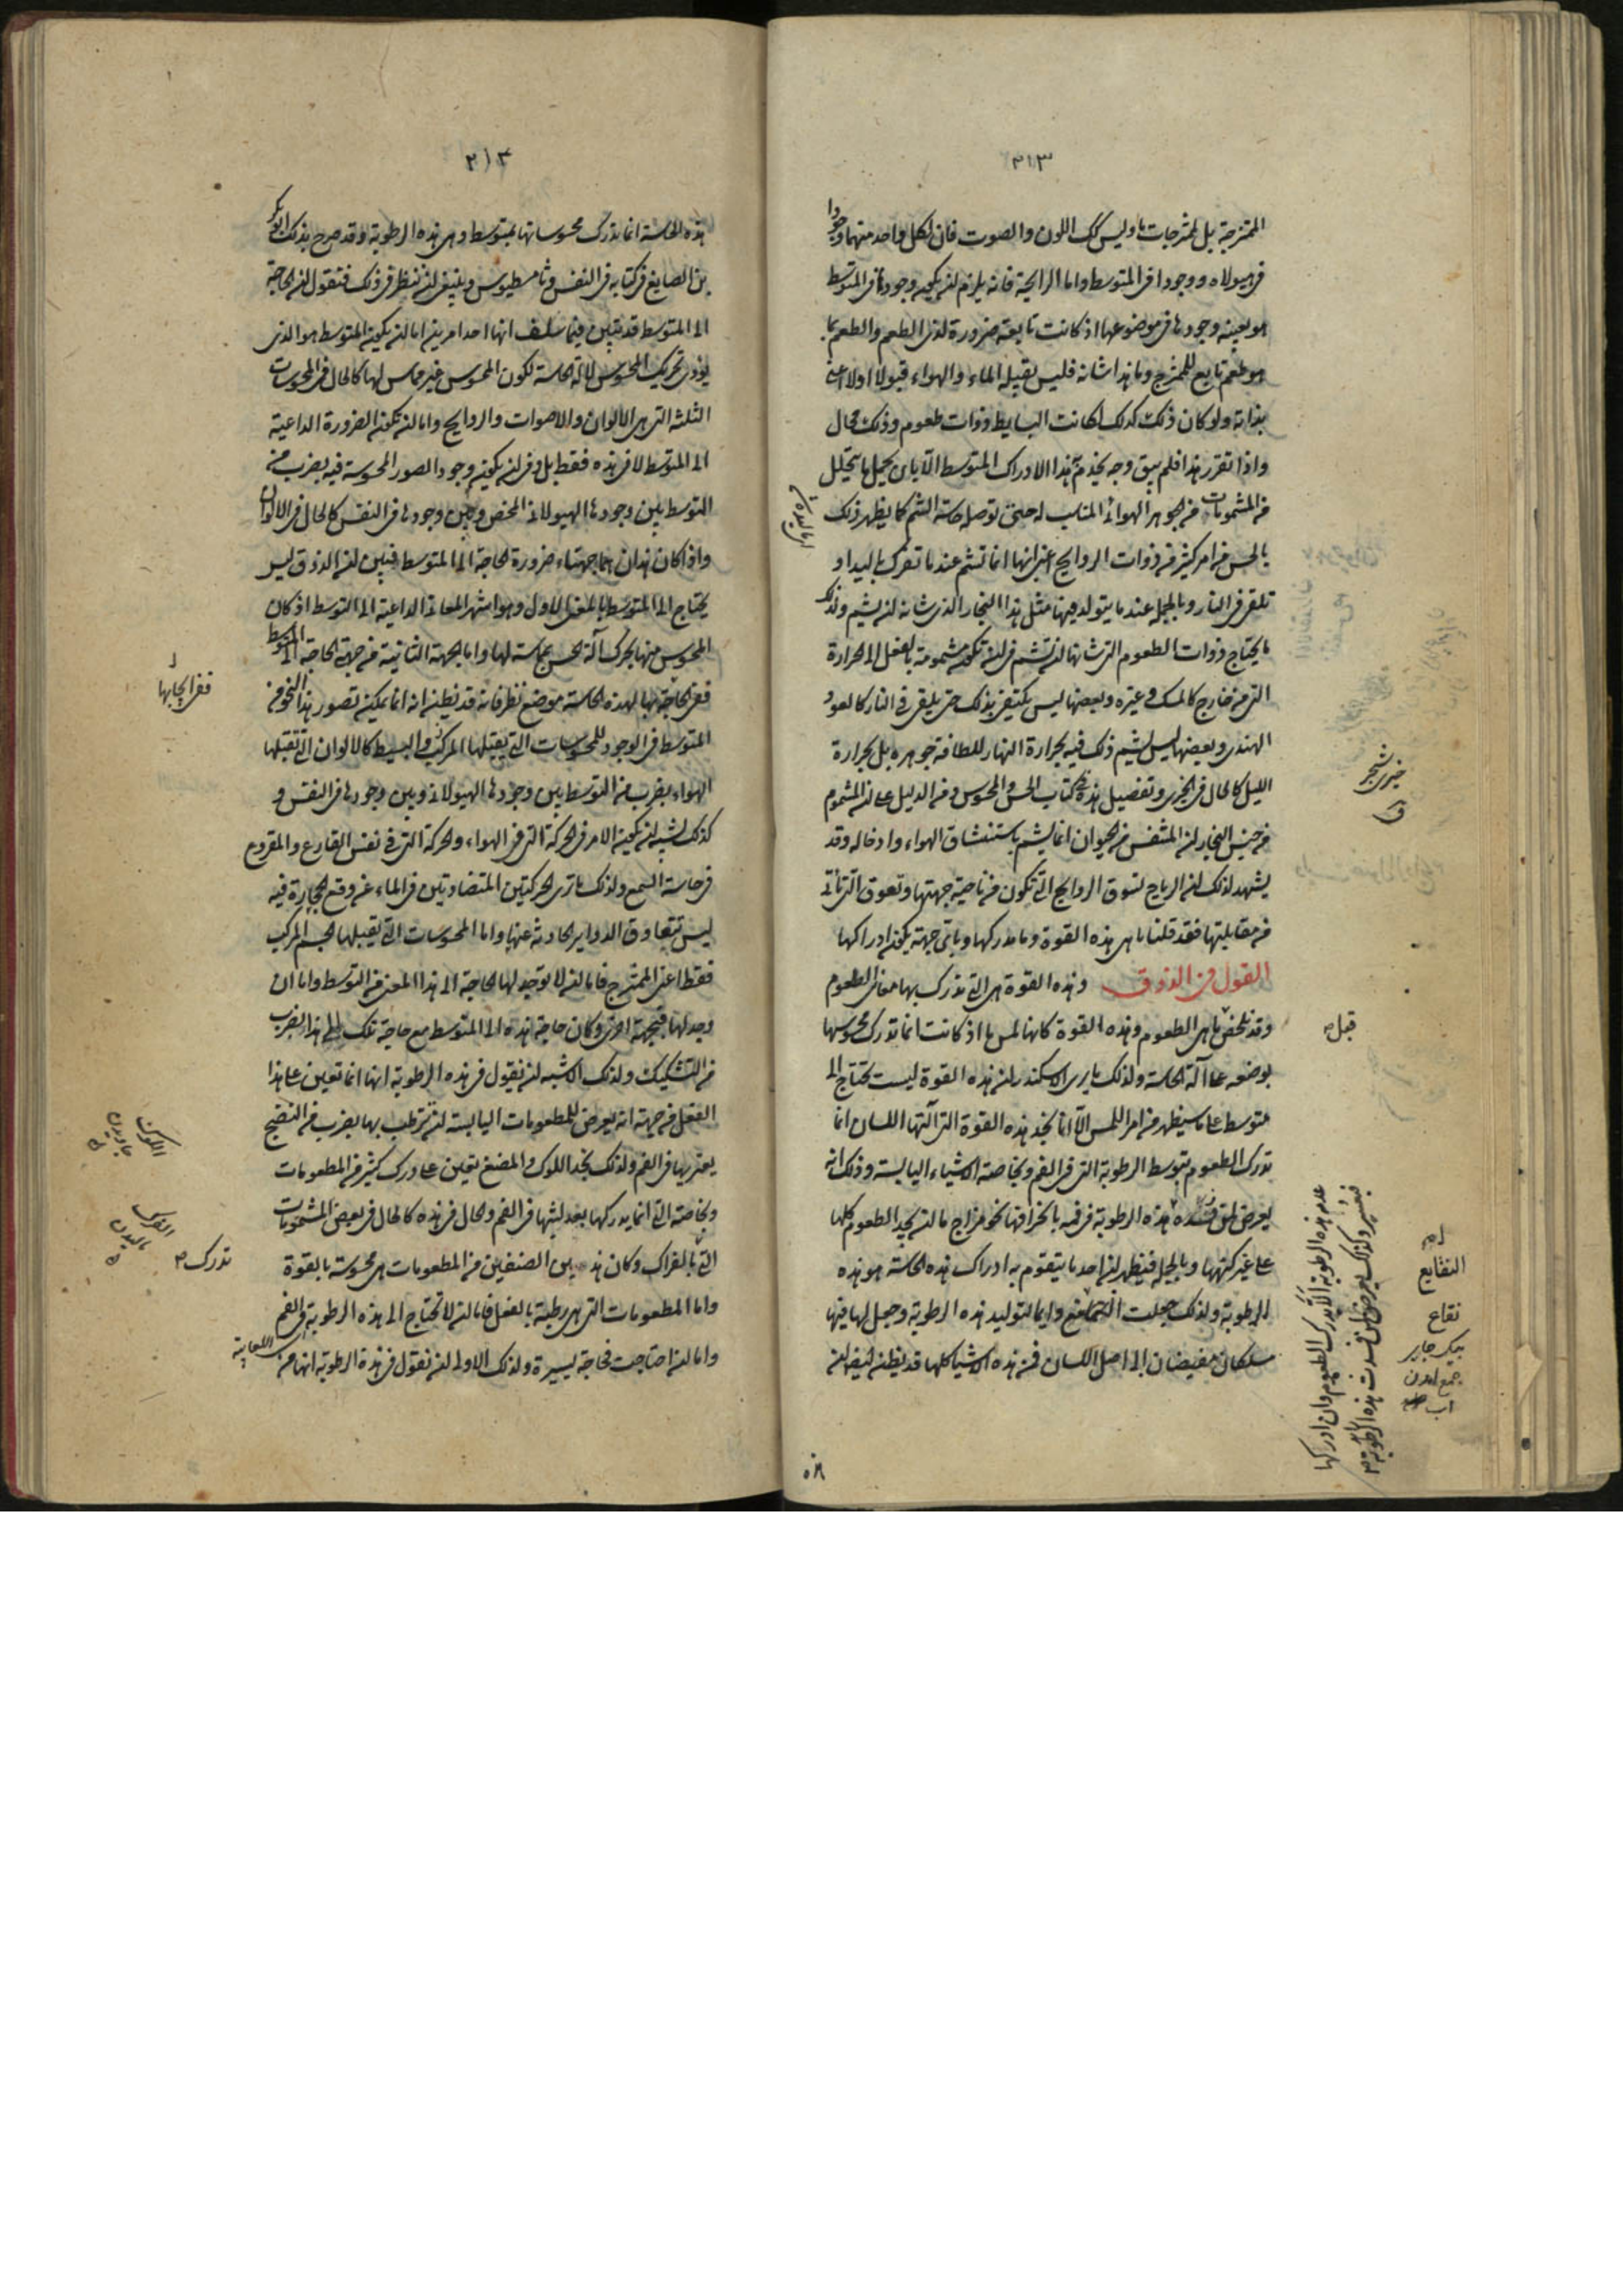 ٣١٣
الممتزجة بل لممتزجات ما وليس كك اللون والصوت فان لكل واحد منهما وجودا
فى هيولاه ووجودا فى المتوسط واما الرايحة فانه يلزم ان يكون وجودها فى المتوسط
هو بعينه وجودها فى موضوعها اذ كانت تابعة ضرورة لذى الطعم والطعم بما
هو طعم تابع للممتزج وما هذا شانه فليس يقبله الماء والهواء قبولا اولا اعنى
بذاته ولو كان ذلك كذلك لكانت البسايط ذوات طعوم وذلك محال
واذا تقرر هذا فلم يبق وجه يخدم به هذا الادراك المتوسط الا بان يحمل ما يتحلل
من المشمومات من الجوهر الهوائى المناسب له حتى توصله حاسة الشم كما يظهر ذلك
بالحس من امر كثير من ذوات الروايح اعنى انها انما تشم عندما تفرك باليد او
تلقى فى النار وبالجملة عندما يتولد فيها مثل هذا البخار الذى شانه ان يشم ولذلك
ما يحتاج ذوات الطعوم التى شانها ان تشم فى ان تكون مشمومة بالفعل الى الحرارة
التى من خارج كالمسك وغيره وبعضها ليس يكتفى بذلك حتى يلقى فى النار كالعود
الهندى وبعضها ليس يشم ذلك فيه بحرارة النهار للطافة جوهره بل بحرارة
الليل كالحال فى الخيرى وتفصيل هذه فى كتاب الحس والمحسوس ومن الدليل على ان المشموم
من جنس البخار ان المتنفس من الحيوان انما يشم باستنشاق الهواء وادخاله وقد
يشهد لذلك ان الرياح تسوق الروايح التى تكون من ناحية جهتها وتعوق التى تأتى
من مقابلتها فقد قلنا ما هى هذه القوة وما مدركها وباى جهة يكون ادراكها
القول فى الذوق وهذه القوة هى التى تدرك بها معانى الطعوم
وقد تلخص ما هى الطعوم وهذه القوة كانها لمس ما اذ كانت انما تدرك محسوسها
بوضعه على آلة الحاسة ولذلك ما يرى الاسكندر ان هذه القوة ليست تحتاج الى
متوسط على ما سيظهر من امر اللمس الا انا نجد هذه القوة التى آلتها اللسان انما
تدرك الطعوم بتوسط الرطوبة التى فى الفم وبخاصة الاشياء اليابسة وذلك انه
يعرض لمن فسدت هذه الرطوبة فى فمه بانحرافها نحو مزاج ما ان يجد الطعوم كلها
على غير كنهها وبالجملة فيظهر ان احد ما يتقوم به ادراك هذه الحاسة هو هذه
الرطوبة ولذلك جعلت النغانغ دايما لتوليد هذه الرطوبة وجعل لها فيها
مسلكان مفيضان الى اصل اللسان فمن هذه الاشيا كلها قد يظن ايضا ان
خيرى شجر
قبل
النقايع
نقاع
جمع
اب
عدم هذه الرطوبة الا تدرك الطعوم وان ادركها
فبعسر وكذلك يعرض لمن فسدت هذه الرطوبة
٣١٤
هذه الحاسة انما تدرك محسوساتها بمتوسط وهى هذه الرطوبة وقد صرح بذلك ابو بكر
بن الصايغ فى كتابه فى النفس وثامسطيوس وينبغى ان ننظر فى ذلك فنقول ان الحاجة
الى المتوسط قد تبين فيما سلف انها احد امرين اما ان يكون المتوسط هو الذى
يؤدى تحريك المحسوس لالة الحاسة لكون المحسوس غير مماس لها كالحال فى المحسوسات
الثلثة التى هى الالوان والاصوات والروايح واما ان تكون الضرورة الداعية
الى المتوسط لا فى هذه فقط بل وفى ان يكون وجود الصور المحسوسة فيه بضرب من
التوسط بين وجودها الهيولانى المحض وبين وجودها فى النفس كالحال فى الالوان
واذا كان هذان هما جهتا ضرورة الحاجة الى المتوسط فبين ان الذوق ليس
يحتاج الى المتوسط بالمعنى الاول وهو اشهر المعانى الداعية الى التوسط اذ كان
المحسوس منها يحرك آلة الحس بمماسة لها واما الجهة الثانية من جهتى الحاجة الى المتوسط
ففى الحاجة بها لهذه الحاسة موضع نظر فانه قد يظن انه انما يمكن تصور هذا النحو من
المتوسط فى الوجود للمحسوسات التى يقبلها المركب والبسيط كالالوان التى تقبلها
الهواء بضرب من التوسط بين وجودها الهيولانى وبين وجودها فى النفس و
كذلك يشبه ان يكون الامر فى الحركة التى فى الهواء والحركة التى فى نفس القارع والمقروع
فى حاسة السمع ولذلك ما ترى الحركتين المتضادتين فى الماء عن وقع الحجارة فيه
ليس تتعاوق الدواير الحادثة عنها واما المحسوسات التى يقبلها الجسم المركب
فقط اعنى الممتزج فاما ان لا توجد لها الحاجة الى هذا المعنى من التوسط واما ان
وجد لها فبجهة اخرى وكان حاجة هذه الى المتوسط مع حاجة تلك الى هذا بضرب
من التشكيك ولذلك الاشبه ان نقول فى هذه الرطوبة انها انما تعين على هذا
الفعل من جهة انه يعرض للمطعومات اليابسة ان تترطب بها بضرب من النضج
يعتريها فى الفم ولذلك نجد اللوك والمضغ يعين على درك كثير من المطعومات
وبخاصة التى انما يدركها بعد لبثها فى الفم والحال فى هذه كالحال فى بعض المشمومات
التى بالفراك وكان هذين الصنفين من المطعومات هى محسوسة بالقوة
واما المطعومات التى هى رطبة بالفعل فاما ان لا تحتاج الى هذه الرطوبة فى الفم
واما ان احتاجت فحاجة يسيرة ولذلك الاولى ان نقول فى هذه الرطوبة اللعابية انها من
ففى ايجابها
اللوك
خاييدن
الفرك
ماليدن
تدرك